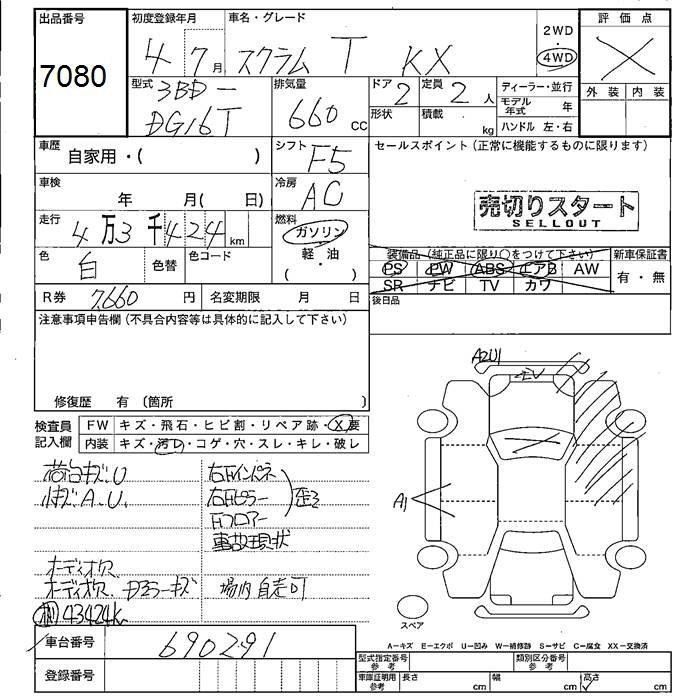 出品番号 初度登録年月 車名・グレード 2WD 評価点
7080 4 7月 スクラム T KX 4WD X
型式 3BD- 排気量 ドア 2 定員 2人 ディーラー・並行 外装 内装
DG16T 660 cc 形状 積載 kg モデル年式 年
ハンドル 左・右
車歴 自家用・( ) シフト F5 セールスポイント(正常に機能するものに限ります)
車検 年 月( 日) 冷房 AC
売切りスタート
SELLOUT
走行 4万3千424km 燃料 ガソリン・軽・油・( )
色 白 色替 色コード
装備品(純正品に限り○をつけて下さい) 新車保証書
PS PW ABS エアB AW 有・無
SR ナビ TV カワ
R券 7660円 名変期限 月 日 後日品
注意事項申告欄(不具合内容等は具体的に記入して下さい)
修復歴 有(箇所 )
検査員記入欄 FW キズ・飛石・ヒビ割・リペア跡・X要
内装 キズ・汚レ・コゲ・穴・スレ・キレ・破レ
A2U1
A1
荷台キズU 右Fインパネ
キズA.U. 右Fピラー 歪
Fフロアー
事故現状
オーディオ欠
オーディオ欠 ドアミラーキズ 場内自走可
43424k
スペア
車台番号 690291
A-キズ E-エクボ U-凹み W-補修跡 S-サビ C-腐食 XX-交換済
登録番号
型式指定番号 参考 類別区分番号 参考
車庫証明用 参考 長さ cm 幅 cm 高さ cm